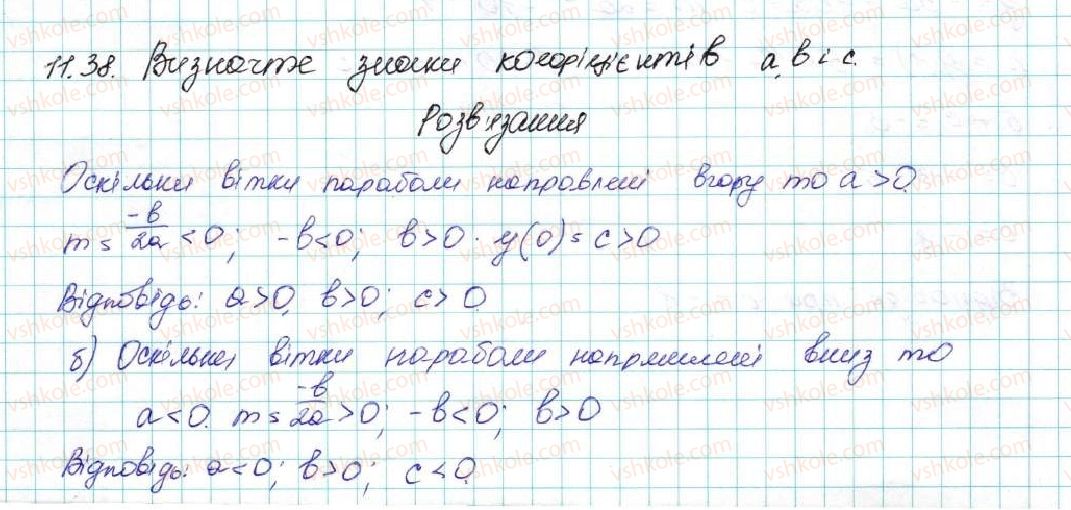 11.38. Визначте знаки коефіцієнтів a, b і c.
Розв'язання
Оскільки вітки параболи направлені вгору то a > 0.
m = -b/2a < 0; -b < 0; b > 0. y(0) = c > 0
Відповідь: a > 0, b > 0; c > 0.
б) Оскільки вітки параболи напрямлені вниз то
a < 0. m = -b/2a > 0; -b < 0; b > 0
Відповідь: a < 0; b > 0; c < 0.